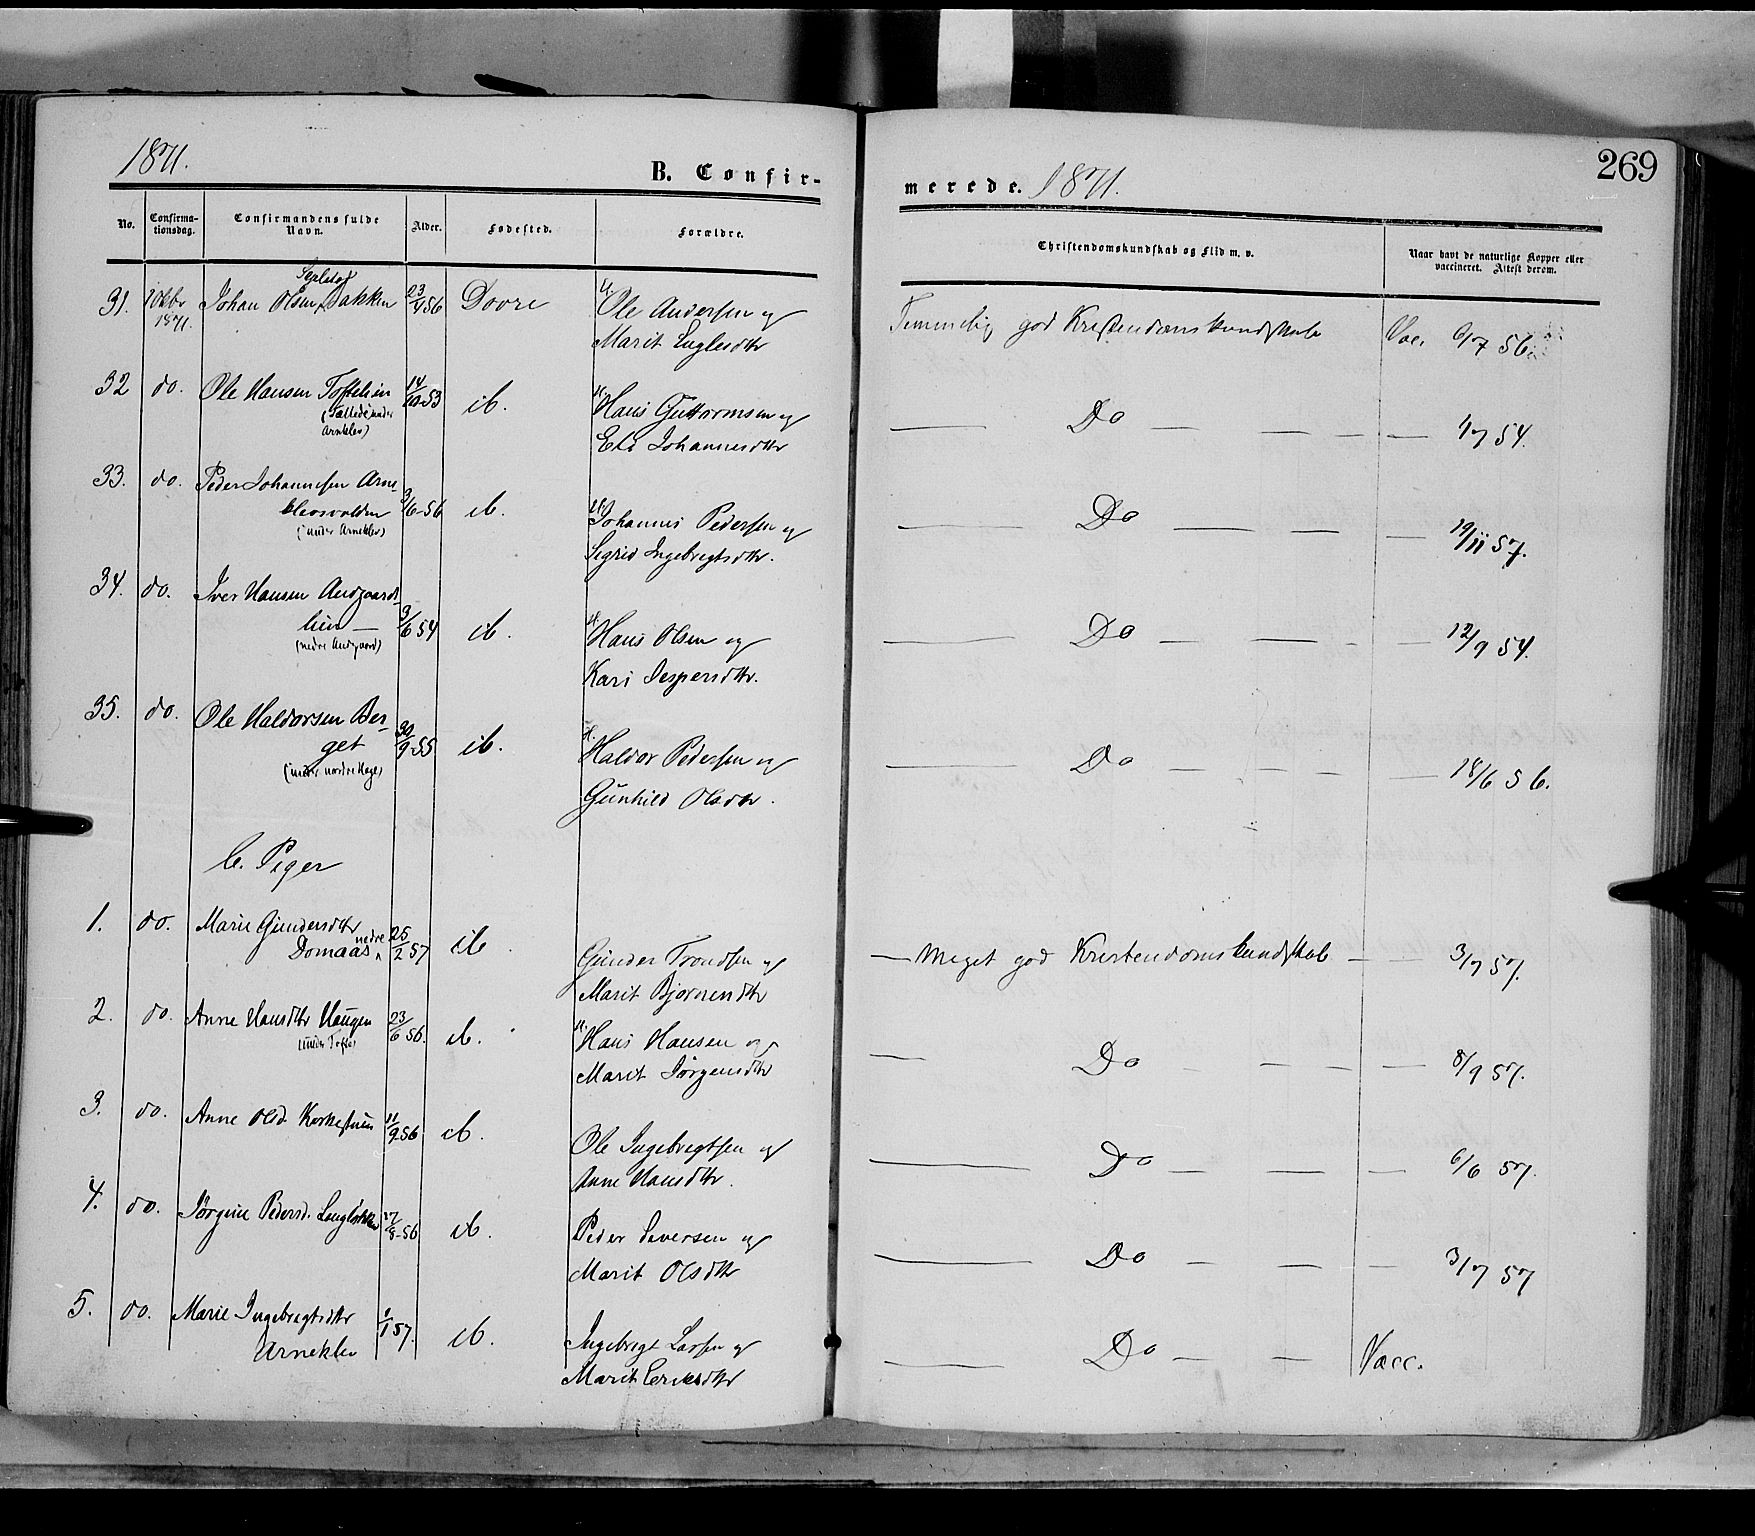 1871.
B. Confir-
merede. 1871.
269
No.
Confirma-
tionsdag.
Confirmandens fulde
Navn.
Alder.
Fødested.
Forældre.
Christendomskundskab og Flid m. v.
Naar havt de naturlige Kopper eller
vaccineret. Attest derom.
31. 1 Oktbr 1871. Johan Olsen Bakken 23/4 56 Dovre Ole Andersen og
Marit Englesdtr
Temmelig god Kristendomskundskab Vac. 6/7 56.
32 do. Ole Hansen Toftelien 14/10-53 ib. Hans Guttormsen og
(under
Arneklev)
Johannesdtr
Do 1/7 54.
33. do. Peder Johannesen Arne-
klevsvolden 3/6-56 ib. Johannes Pedersen og
(under Arneklev)
Sigrid Ingebregtsdtr.
Do 19/11 57.
34. do. Iver Hansen Andgaards-
lien 9/6 54 ib. Hans Olsen og
(nedre Andgaard)
Kari Jespersdtr.
Do 12/9 54.
35. do. Ole Haldorsen Ber-
get 30/9-55 ib. Haldor Pedersen og
(under nordre Hage)
Gunhild Olsdtr.
Do 18/6 56.
b. Piger
1. do. Marie Gundersdtr
Domaas nedre 25/2 57 ib. Gunder Trondsen og
Marit Bjørnersdtr
Meget god Kristendomskundskab 3/7 57.
2. do. Anne Hansdtr Haugen 23/6 56. ib. Hans Hansen og
under Tofte
Marit Jørgensdtr
Do 8/9 57.
3. do. Anne Olsd. 11/9 56 ib. Ole Ingebregtsen og
Anne Hansdtr.
Do 6/6 57.
4. do. Jørgine Pedersd. 27/8-56 ib. Peder Siversen og
Marit Olsdtr
Do 3/7 57
5. do. Marie Ingebregtsdtr
Arneklev 1/1 57. ib. Ingebregt Larsen og
Marit Eriksdtr
Do Vacc.